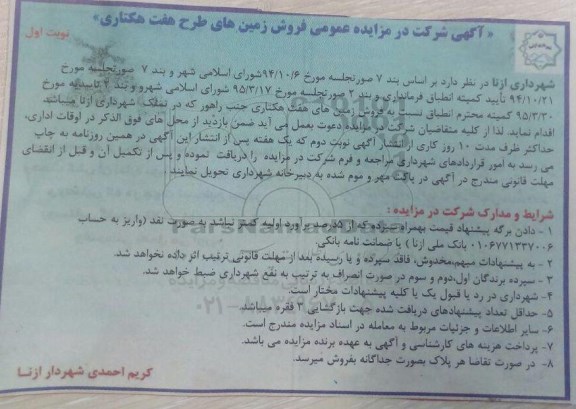 « آگهی شرکت در مزایده عمومی فروش زمین های طرح هفت هکتاری»
نوبت اول
شهرداری ازنا در نظر دارد بر اساس بند ۷ صورتجلسه مورخ ۹۴/۱۰/۶ شورای اسلامی شهر و بند ۷ صورتجلسه مورخ
۹۴/۱۰/۲۱ تأیید کمیته انطباق فرمانداری و بند ۲ صورتجلسه مورخ ۹۵/۳/۱۷ شورای اسلامی شهرو و بند ۲ تأییدیه مورخ
۹۵/۳/۳۰ کمیته محترم انطباق نسبت به فروش زمین های هفت هکتاری جنب راهور که در تملک شهرداری ازنا میباشد
اقدام نماید. لذا از کلیه متقاضیان شرکت در مزایده دعوت بعمل می آید ضمن بازدید از محل های فوق الذکر در اوقات اداری،
حداکثر ظرف مدت ۱۰ روز کاری از انتشار آگهی نوبت دوم که یک هفته پس از انتشار این آگهی در همین روزنامه به چاپ
می رسد به امور قراردادهای شهرداری مراجعه و فرم شرکت در مزایده را دریافت نموده و پس از تکمیل آن و قبل از انقضای
مهلت قانونی مندرج در آگهی در پاکت مهر و موم شده به دبیرخانه شهرداری تحویل نمایند.
شرایط و مدارک شرکت در مزایده :
۱ - دادن برگه پیشنهاد قیمت بهمراه سپرده که از ۵درصد برآورد اولیه کمتر نباشد به صورت نقد (واریز به حساب
۰۱۰۶۷۷۱۳۳۷۰۰۶ بانک ملی ازنا ) یا ضمانت نامه بانکی.
۲ - به پیشنهادات مبهم،مخدوش، فاقد سپرده و یا رسیده بعد از مهلت قانونی ترتیب اثر داده نخواهد شد.
۳ - سپرده برندگان اول،دوم و سوم در صورت انصراف به ترتیب به نفع شهرداری ضبط خواهد شد.
۴- شهرداری در رد یا قبول یک یا کلیه پیشنهادات مختار است.
۵- حداقل تعداد پیشنهادهای دریافت شده جهت بازگشایی ۳ فقره میباشد.
۶- سایر اطلاعات و جزئیات مربوط به معامله در اسناد مزایده مندرج است.
۷- پرداخت هزینه های کارشناسی و آگهی به عهده برنده مزایده می باشد.
۸- در صورت تقاضا هر پلاک بصورت جداگانه بفروش میرسد.
کریم احمدی شهردار ازنا